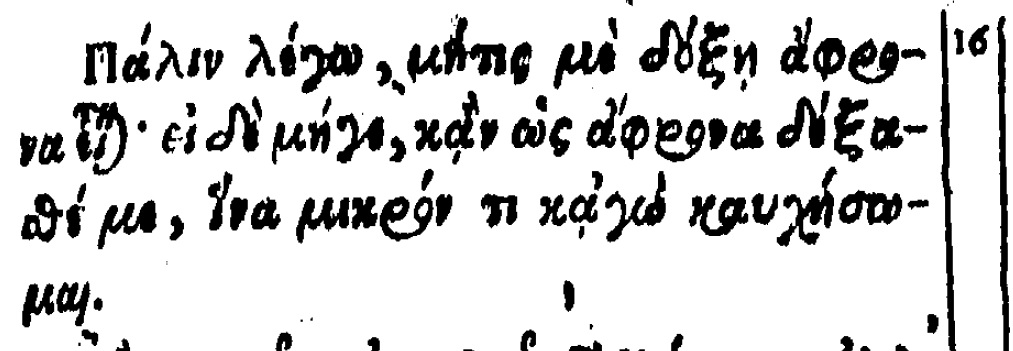 Πάλιν λέγω, μήτις με δόξῃ ἄφρο- 16
να εἶναι· εἰ δὲ μήγε, κᾂν ὡς ἄφρονα δέξα-
θέ με, ἵνα μικρόν τι κᾀγὼ καυχήσω-
μαι.